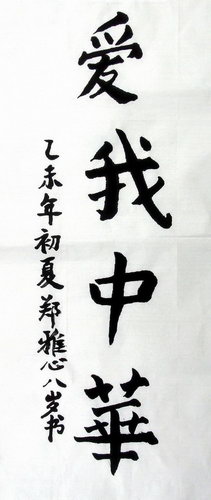 爱我中華
乙未年初夏郑雅心八岁书